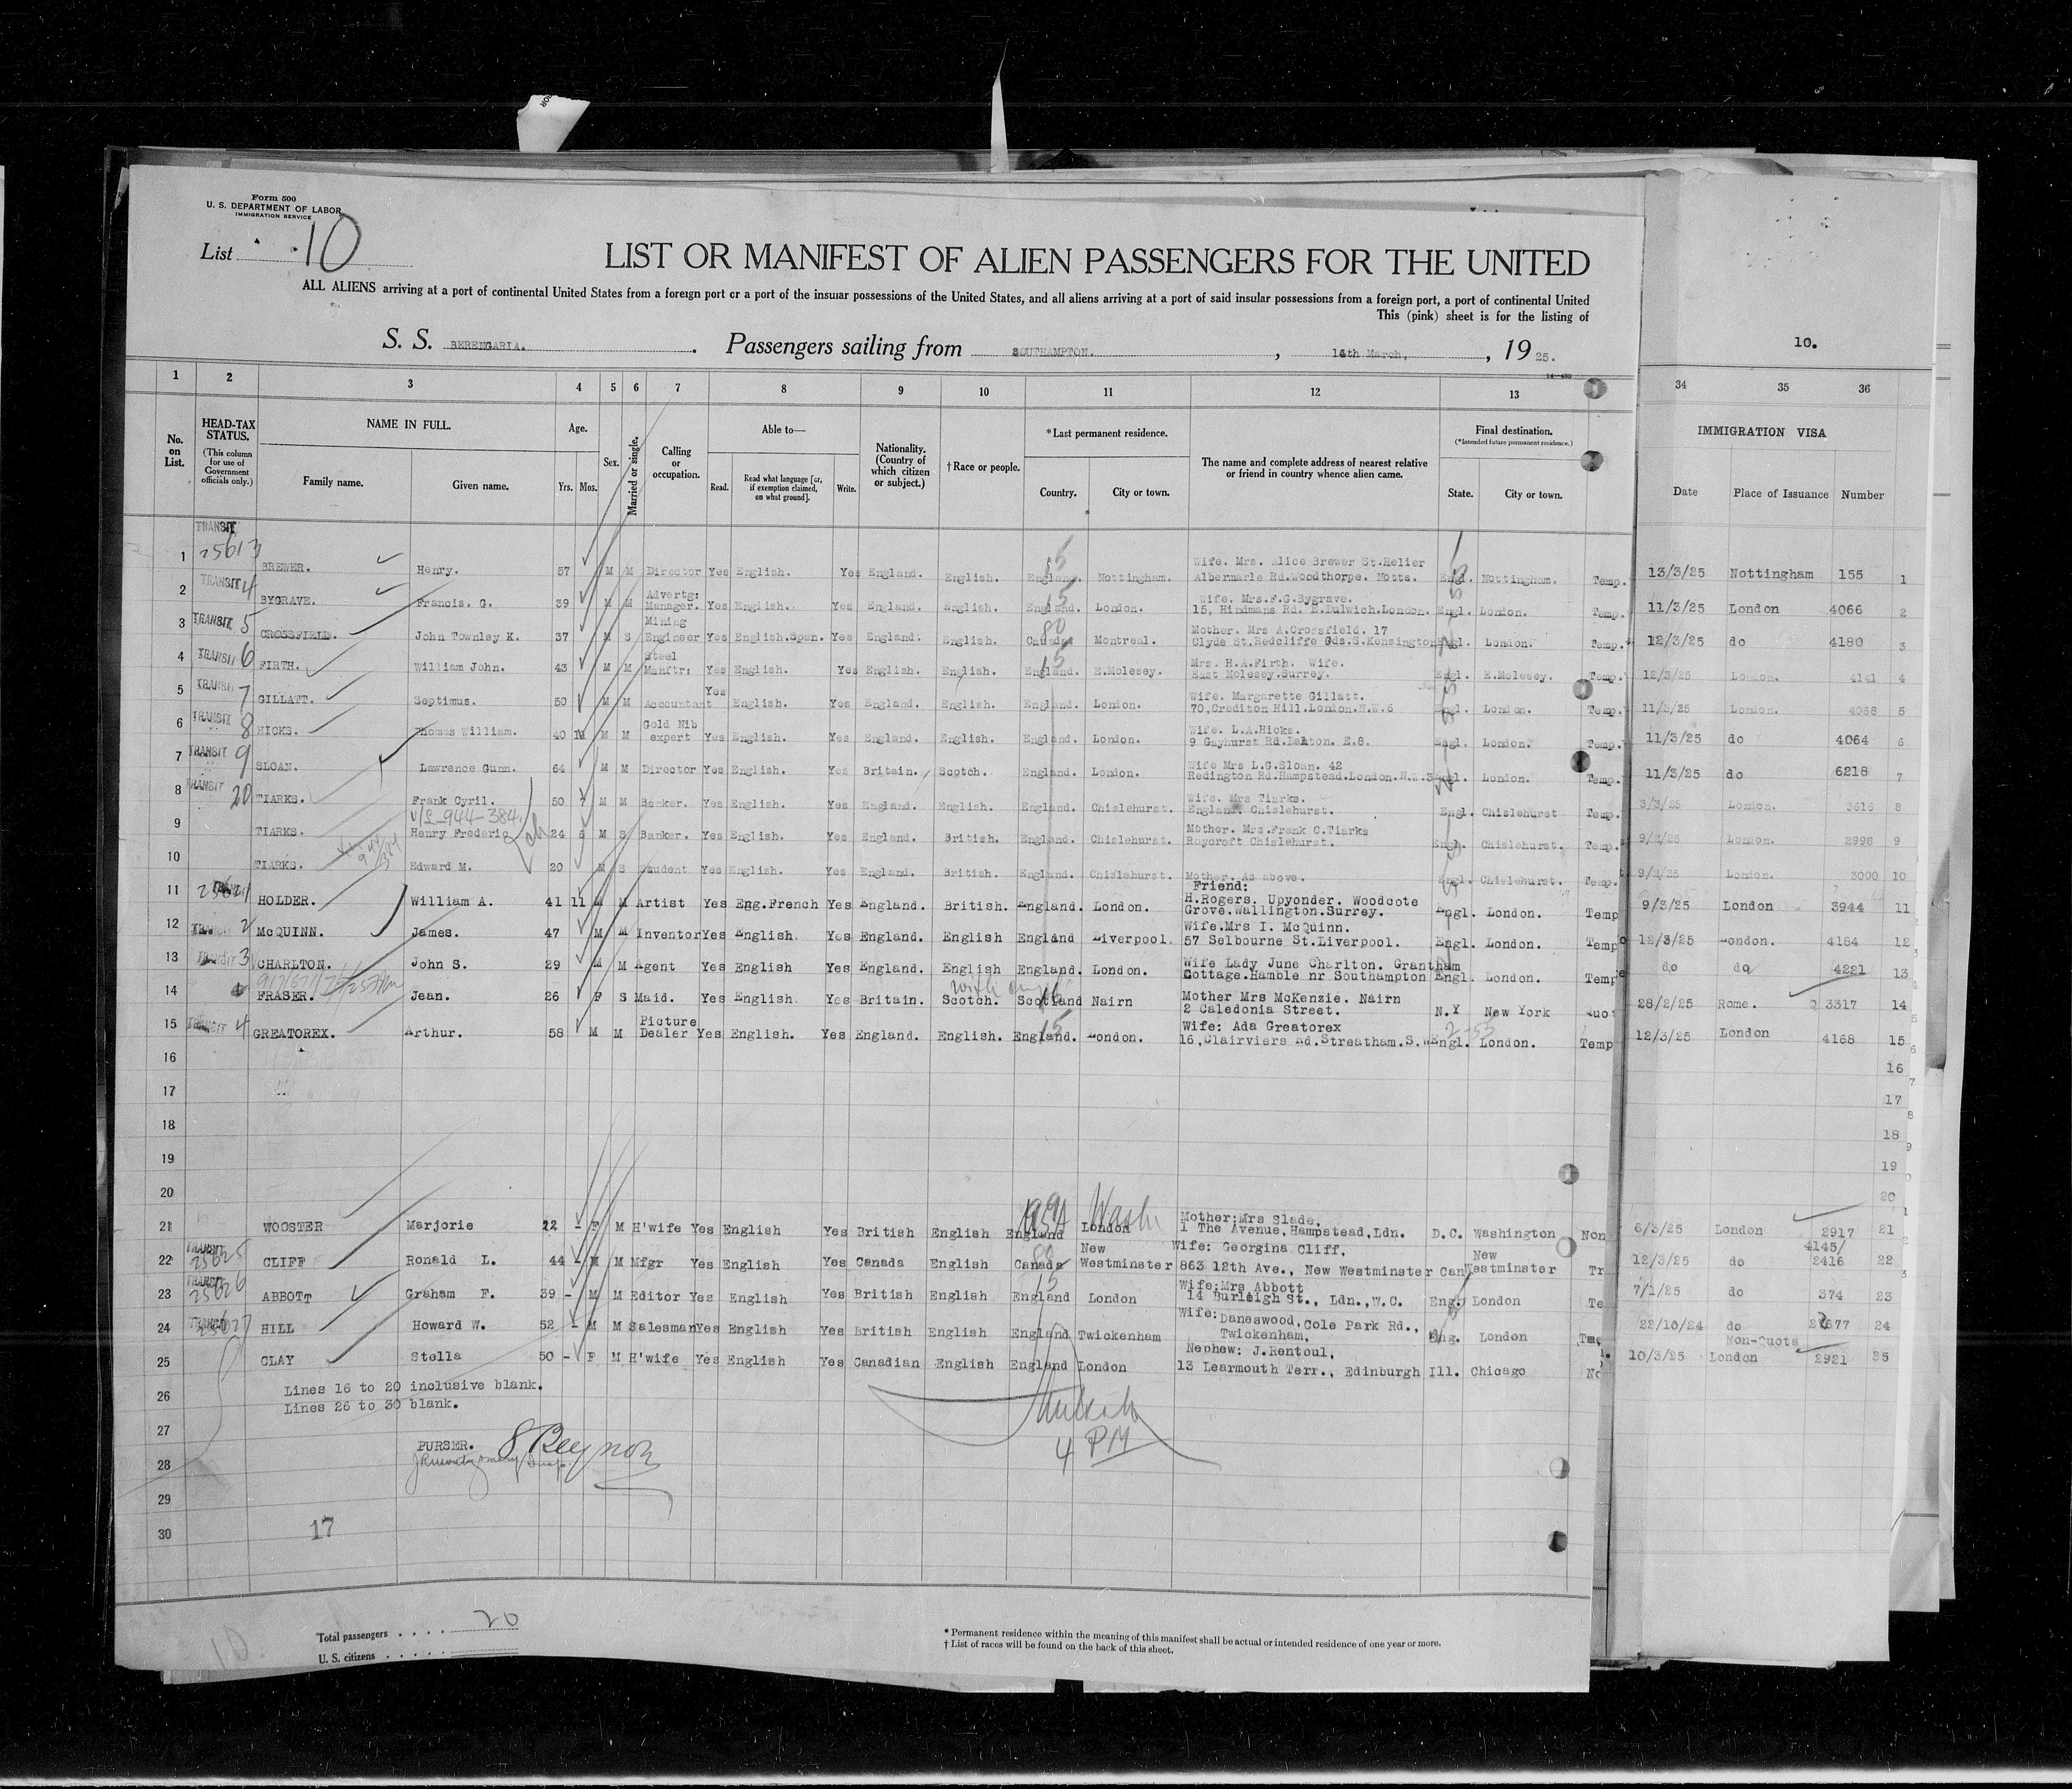 Form 500
U. S. DEPARTMENT OF LABOR
IMMIGRATION SERVICE
List 10
LIST OR MANIFEST OF ALIEN PASSENGERS FOR THE UNITED
ALL ALIENS arriving at a port of continental United States from a foreign port or a port of the insular possessions of the United States, and all aliens arriving at a port of said insular possessions from a foreign port, a port of continental United
This (pink) sheet is for the listing of
S. S. BERENGARIA. Passengers sailing from SOUTHAMPTON. , 14th March, , 1925.
10.
1 2 3 4 5 6 7 8 9 10 11 12 13 34 35 36
No. on List.
HEAD-TAX STATUS.
(This column for use of Government officials only.)
NAME IN FULL.
Family name. Given name.
Age.
Yrs. Mos.
Sex.
Married or single.
Calling or occupation.
Able to—
Read. Read what language [or, if exemption claimed, on what ground]. Write.
Nationality. (Country of which citizen or subject.)
† Race or people.
*Last permanent residence.
Country. City or town.
The name and complete address of nearest relative or friend in country whence alien came.
Final destination.
(*Intended future permanent residence.)
State. City or town.
IMMIGRATION VISA
Date Place of Issuance Number
1 TRANSIT 25613 BREWER. Henry. 57 M M Director Yes English. Yes England. English. England. Nottingham. Wife. Mrs. Alice Brewer St.Helier Albermarle Rd.Woodthorpe. Notts. Engl. Nottingham. Temp. 13/3/25 Nottingham 155 1
2 TRANSIT 4 BYGRAVE. Francis. G. 39 M M Advertg: Manager. Yes English. Yes England. English. England. London. Wife. Mrs.F.G.Bygrave. 15, Hindmans Rd. E.Dulwich.London. Engl. London. Temp. 11/3/25 London 4066 2
3 TRANSIT 5 CROSSFIELD. John Townley K. 37 M S Mining Engineer Yes English.Span. Yes England. English. Canada Montreal. Mother. Mrs A.Crossfield. 17 Clyde St.Redcliffe Gds.S.Kensington Engl. London. Temp. 12/3/25 do 4180 3
4 TRANSIT 6 FIRTH. William John. 43 M M Steel Manftr: Yes English. Yes English. English. England. E.Molesey. Mrs. H.A.Firth. Wife. East Molesey.Surrey. Engl. E.Molesey. Temp. 12/3/25 London. 4141 4
5 TRANSIT 7 GILLATT. Septimus. 50 M M Accountant Yes English. Yes England. English. England. London. Wife. Margarette Gillatt. 70,Crediton Hill.London.N.W.6 Engl. London. Temp. 11/3/25 London. 4068 5
6 TRANSIT 8 HICKS. Thomas William. 40 11 M M Gold Nib expert Yes English. Yes England. English. England. London. Wife. L.A.Hicks. 9 Gayhurst Rd. E.8. Engl. London. Temp. 11/3/25 do 4064 6
7 TRANSIT 9 SLOAN. Lawrence Gunn. 64 M M Director Yes English. Yes Britain. Scotch. England. London. Wife Mrs L.G.Sloan. 42 Redington Rd.Hampstead.London.N.W.3 Engl. London. Temp. 11/3/25 do 6218 7
8 TRANSIT 20 TIARKS. Frank Cyril. 50 M M Banker. Yes English. Yes England. English. England. Chislehurst. Wife. Mrs Tiarks. England. Chislehurst. Engl. Chislehurst Temp. 3/3/25 London. 3616 8
9 TIARKS. Henry Frederic 24 6 M S Banker. Yes English. Yes England. British. England. Chislehurst. Mother. Mrs.Frank C.Tiarks Roycroft Chislehurst. Engl. Chislehurst. Temp. 9/2/25 London. 2998 9
10 TIARKS. Edward M. 20 M S Student Yes English. Yes England. British. England. Chislehurst. Mother. As above. Engl. Chislehurst. Temp. 9/2/25 London. 3000 10
11 25621 HOLDER. William A. 41 11 M M Artist Yes Eng.French Yes England. British. England. London. Friend: H.Rogers. Upyonder. Woodcote Grove.Wallington.Surrey. Engl. London. Temp 9/3/25 London 3944 11
12 2 McQUINN. James. 47 M M Inventor Yes English. Yes England. English England Liverpool. Wife.Mrs I. McQuinn. 57 Selbourne St.Liverpool. Engl. London. Temp 12/3/25 London. 4184 12
13 TRANSIT 3 CHARLTON. John S. 29 M M Agent Yes English Yes England. English England. London. Wife Lady June Charlton. Grantham Cottage.Hamble nr Southampton Engl. London. Temp do do 4221 13
14 FRASER. Jean. 26 F S Maid. Yes English. Yes Britain. Scotch. Scotland Nairn Mother Mrs McKenzie. Nairn 2 Caledonia Street. N.Y New York Quot 28/2/25 Rome. Q 3317 14
15 TRANSIT 4 GREATOREX. Arthur. 58 M M Picture Dealer Yes English. Yes England. English. England. London. Wife: Ada Greatorex 16,Clairviers Rd.Streatham.S.W Engl. London. Temp 12/3/25 London 4168 15
16 16
17 17
18 18
19 19
20 20
21 WOOSTER Marjorie 22 - F M H'wife Yes English Yes British English England London Mother:Mrs Slade, 1 The Avenue,Hampstead,Ldn. D.C. Washington Non 6/3/25 London 2917 21
22 TRANSIT 25625 CLIFF Ronald L. 44 - M M Mfgr Yes English Yes Canada English Canada New Westminster Wife: Georgina Cliff, 863 12th Ave., New Westminster Can New Westminster Tr 12/3/25 do 4145/ 2416 22
23 TRANSIT 25626 ABBOTT Graham F. 39 - M M Editor Yes English Yes British English England London Wife:Mrs Abbott 14 Burleigh St., Ldn.,W.C. Eng. London Te 7/1/25 do 374 23
24 TRANSIT 25627 HILL Howard W. 52 - M M Salesman Yes English Yes British English England Twickenham Wife: Daneswood, Cole Park Rd., Twickenham, Eng. London 22/10/24 do 24
25 CLAY Stella 50 - F M H'wife Yes English Yes Canadian English England London Nephew: J.Rentoul, 13 Learmouth Terr., Edinburgh Ill. Chicago No 10/3/25 Non-Quota London 2921 25
26 Lines 16 to 20 inclusive blank.
Lines 26 to 30 blank.
27
PURSER.
4 PM
28
29
30
17
Total passengers . . . . 20
U. S. citizens . . . . .
* Permanent residence within the meaning of this manifest shall be actual or intended residence of one year or more.
† List of races will be found on the back of this sheet.
10.